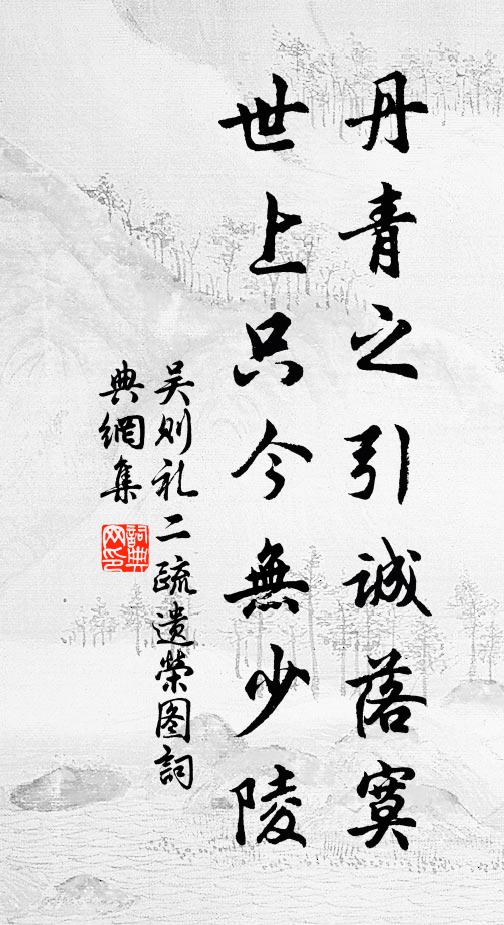 丹青之引诚落寞
世上只今無少陵
吴则礼二疏遗荣图詞
典網集
詞典网印